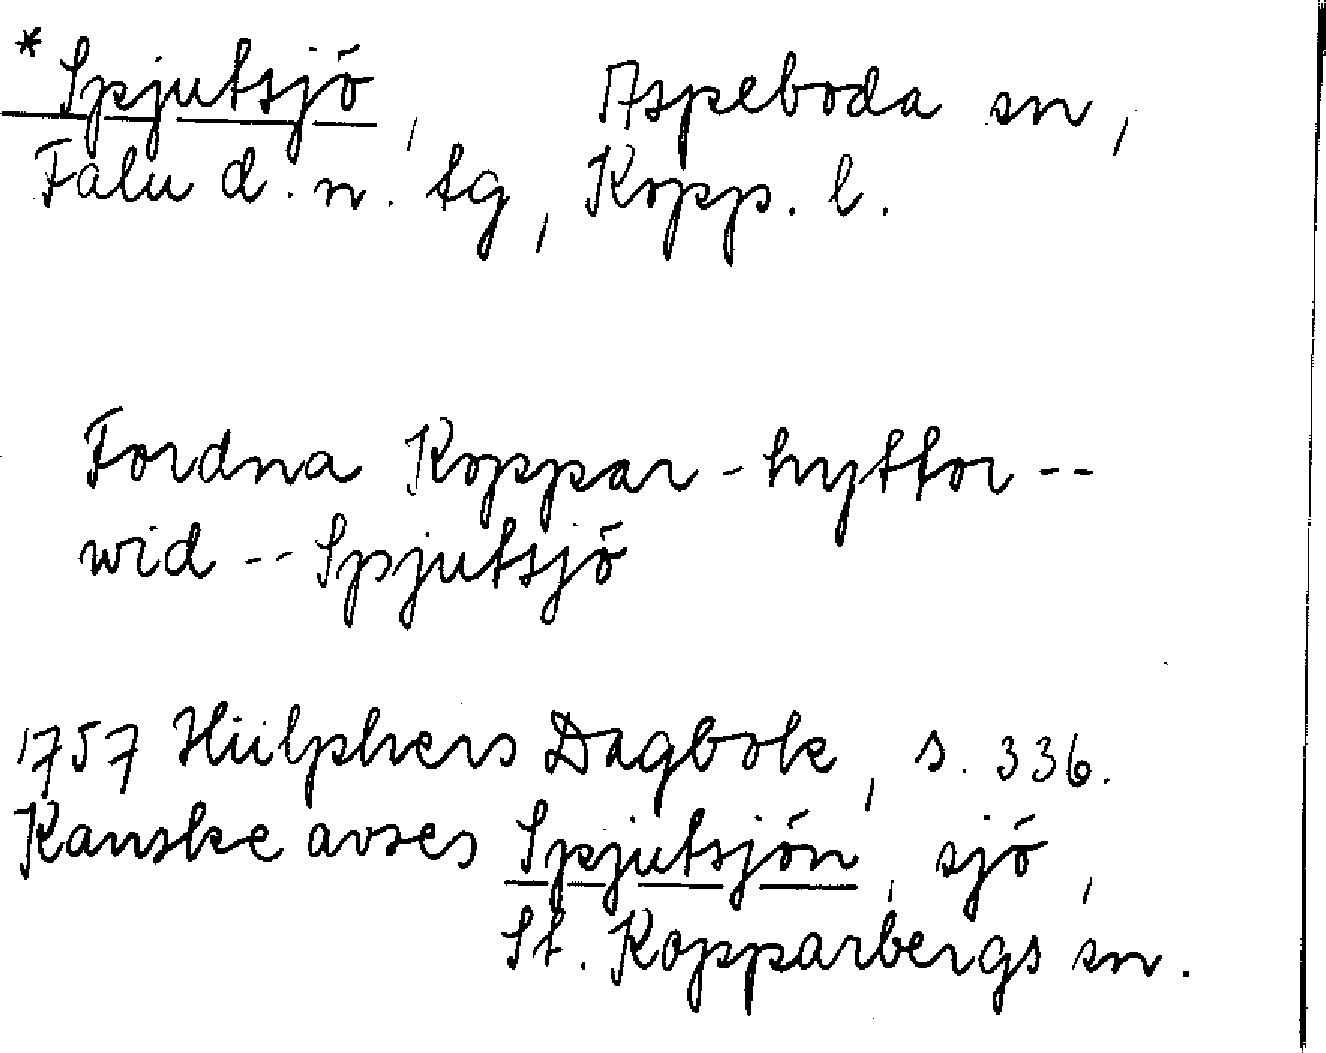 * Spjutsjö, Aspeboda sn,
Falu d. n. tg, Kopp. l.
Fordna Koppar-hyttor --
wid -- Spjutsjö
1757 Hülphers Dagbok, s. 336.
Kanske avses Spjutsjön, sjö,
St. Kopparbergs sn.